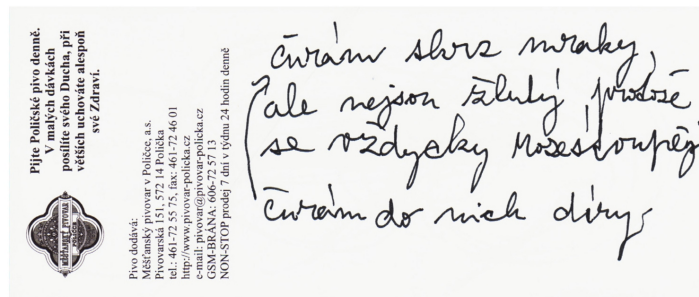 Pijte Poličské pivo denně.
V malých dávkách
posílíte svého Ducha, při
větších uchováte alespoň
své Zdraví.
MĚŠŤANSKÝ PIVOVAR
Pivo dodává:
Měšťanský pivovar v Poličce, a.s.
Pivovarská 151, 572 14 Polička
tel.: 461-72 55 75, fax: 461-72 46 01
http://www.pivovar-policka.cz
e-mail: pivovar@pivovar-policka.cz
GSM-BRÁNA: 606-72 57 13
NON-STOP prodej 7 dní v týdnu 24 hodin denně
čurám skrz mraky,
ale nejsou žlutý, protože
se vždycky rozestoupěj
čurám do nich díry